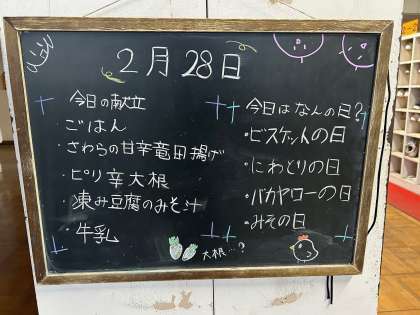 2月28日
今日の献立
・ごはん
・さわらの甘辛竜田揚げ
・ピリ辛大根
・凍み豆腐のみそ汁
・牛乳
今日はなんの日?
・ビスケットの日
・にわとりの日
・バカヤローの日
・みその日
大根…?